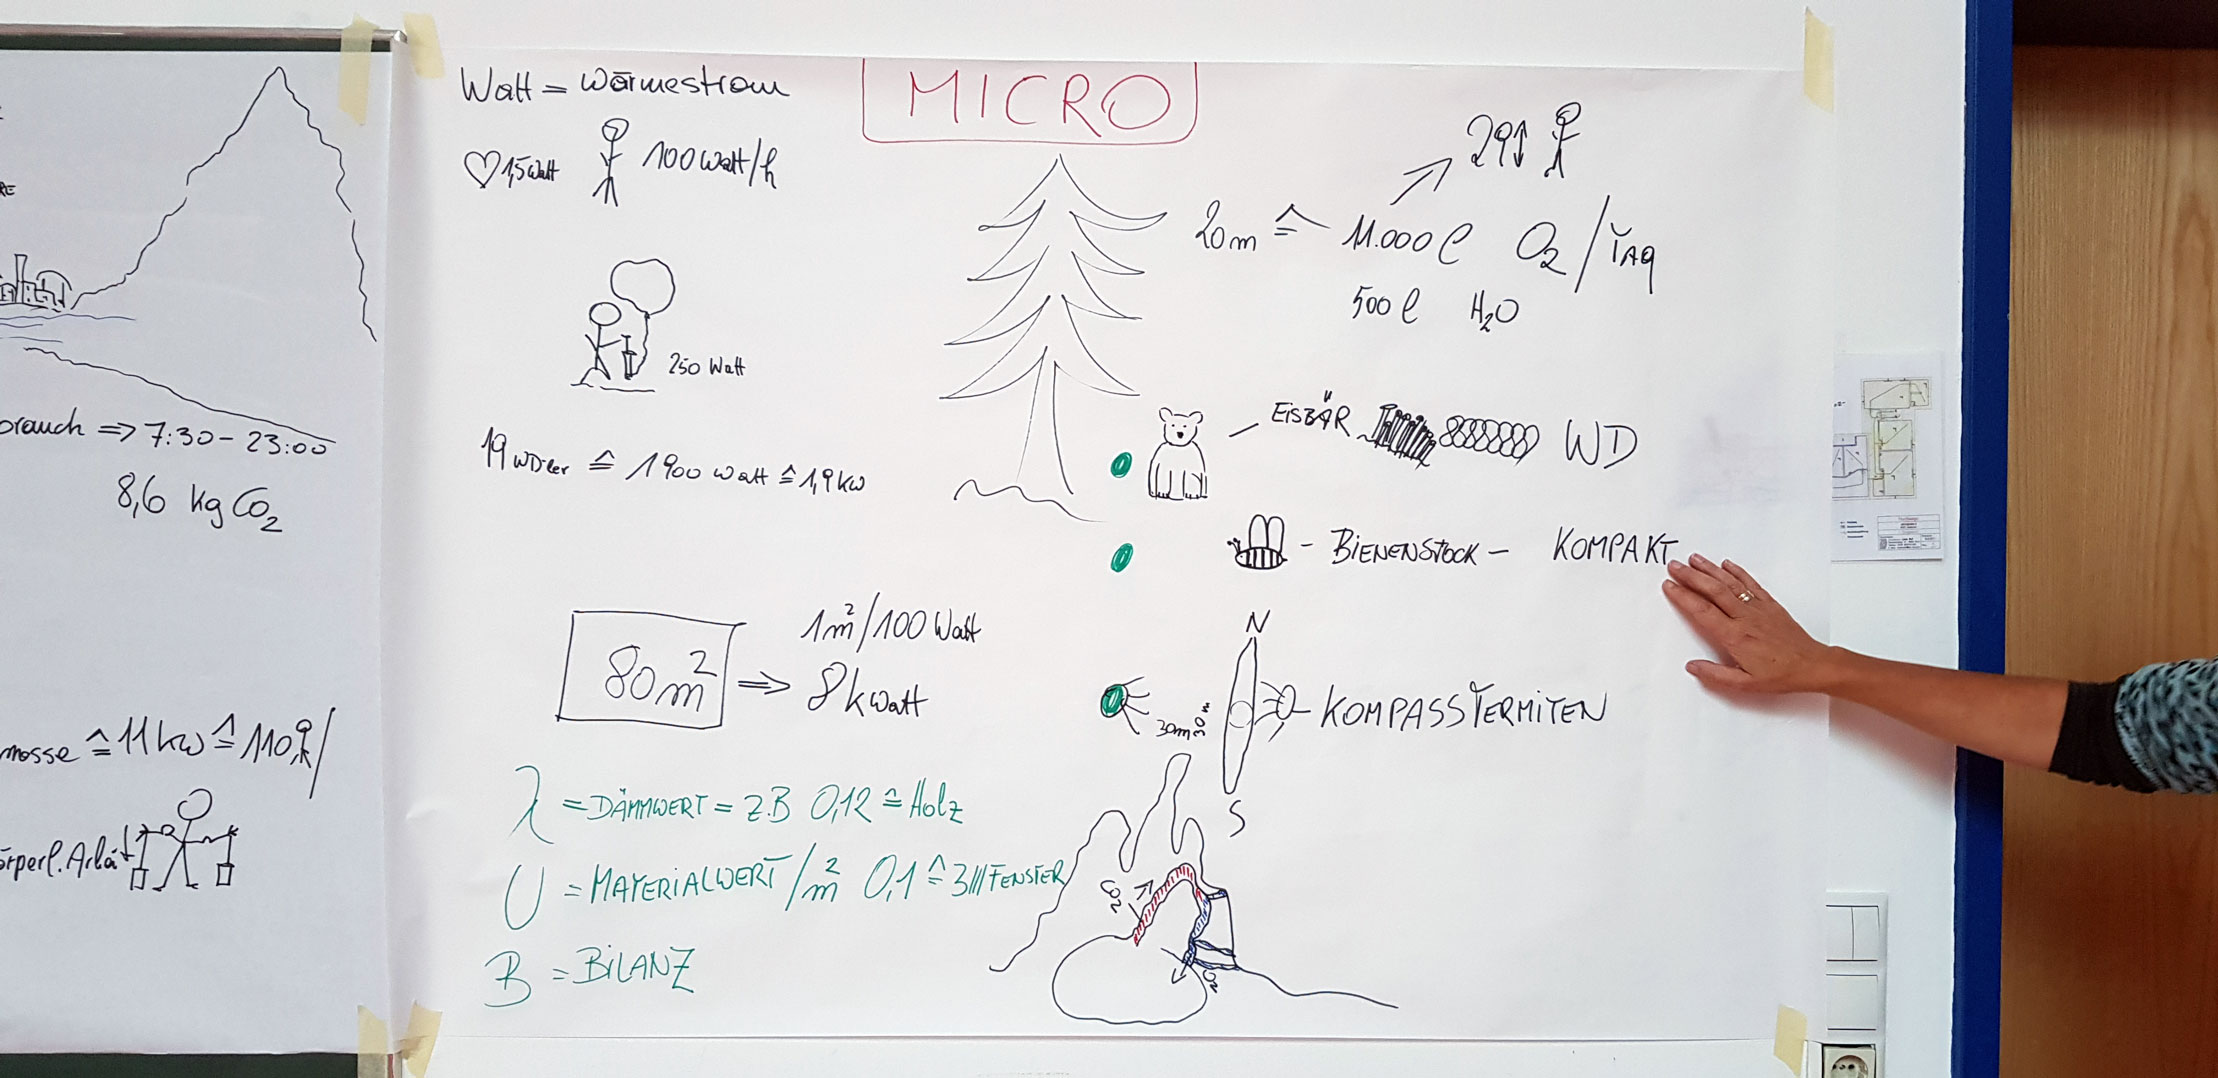 7:30 - 23:00
8,6 kg CO₂
≙ 11 kW ≙ 110
Watt = Wärmestrom
1,5 Watt
100 Watt/h
250 Watt
19 WD-ler ≙ 1900 Watt ≙ 1,9 kW
80 m² ⇒ 8 kWatt
1 m²/100 Watt
λ = DÄMMWERT = z.B 0,12 ≙ Holz
U = MATERIALWERT/m² 0,1 ≙ 3 /// FENSTER
B = BILANZ
MICRO
29
20 m ≙ 11.000 l O₂ / TAG
500 l H₂O
EISBÄR WD
- BIENENSTOCK - KOMPAKT
N
KOMPASSTERMITEN
S